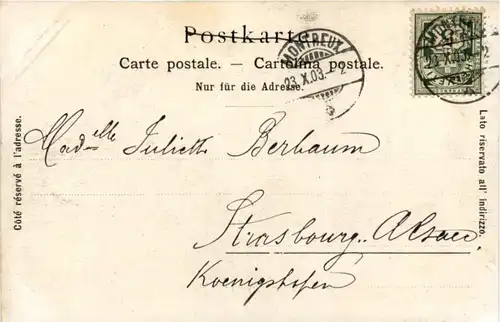 Postkarte
Carte postale. — Cartolina postale.
Nur für die Adresse.
MONTREUX
23.X.03.
Côté réservé à l'adresse.
Lato riservato all' indirizzo.
Madelle Juliette Berbaum
Strasbourg.. Alsace.
Koenigshofen